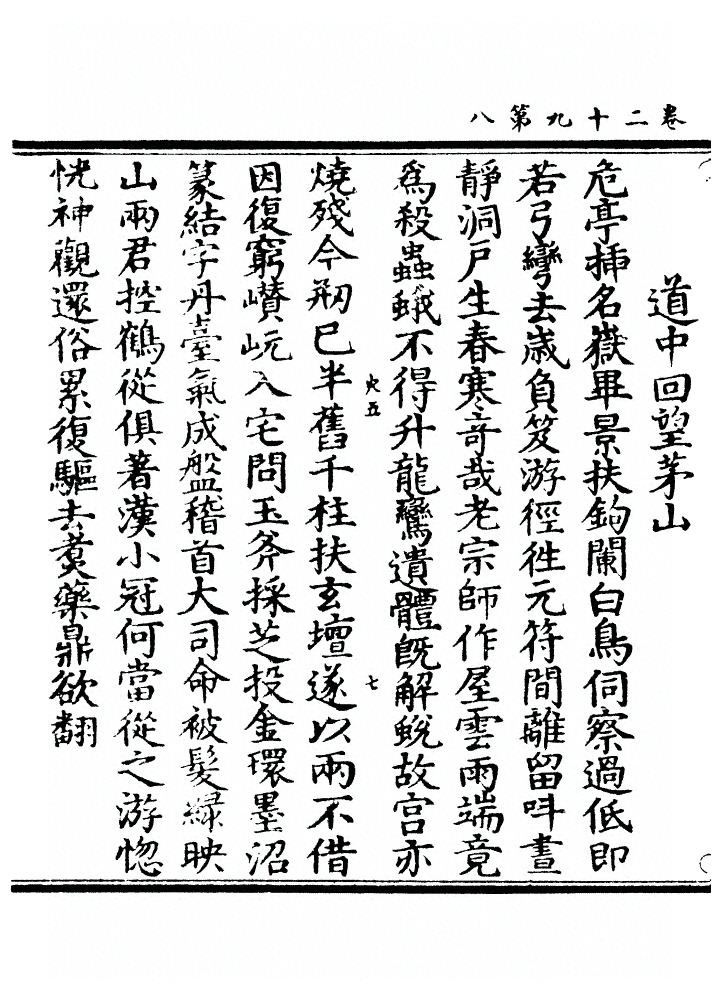 卷二十九第八
道中回望茅山
危亭揷名嶽畢景扶鉤闌白鳥伺察過低即
若弓彎去歲負笈游徑徃元符間離留呌晝
靜洞戶生春寒竒哉老宗師作屋雲雨端竟
爲殺蟲蛾不得升龍鸞遺體旣解蛻故宮亦
火五
七
燒殘今剏巳半舊千柱扶玄壇遂以兩不借
因復窮巑岏入宅問玉斧採芝投金環墨沼
篆結字丹臺氣成盤稽首大司命被髮綠映
山兩君控鶴從俱著漢小冠何當從之游惚
恍神觀還俗累復驅去煑藥鼎欲翻